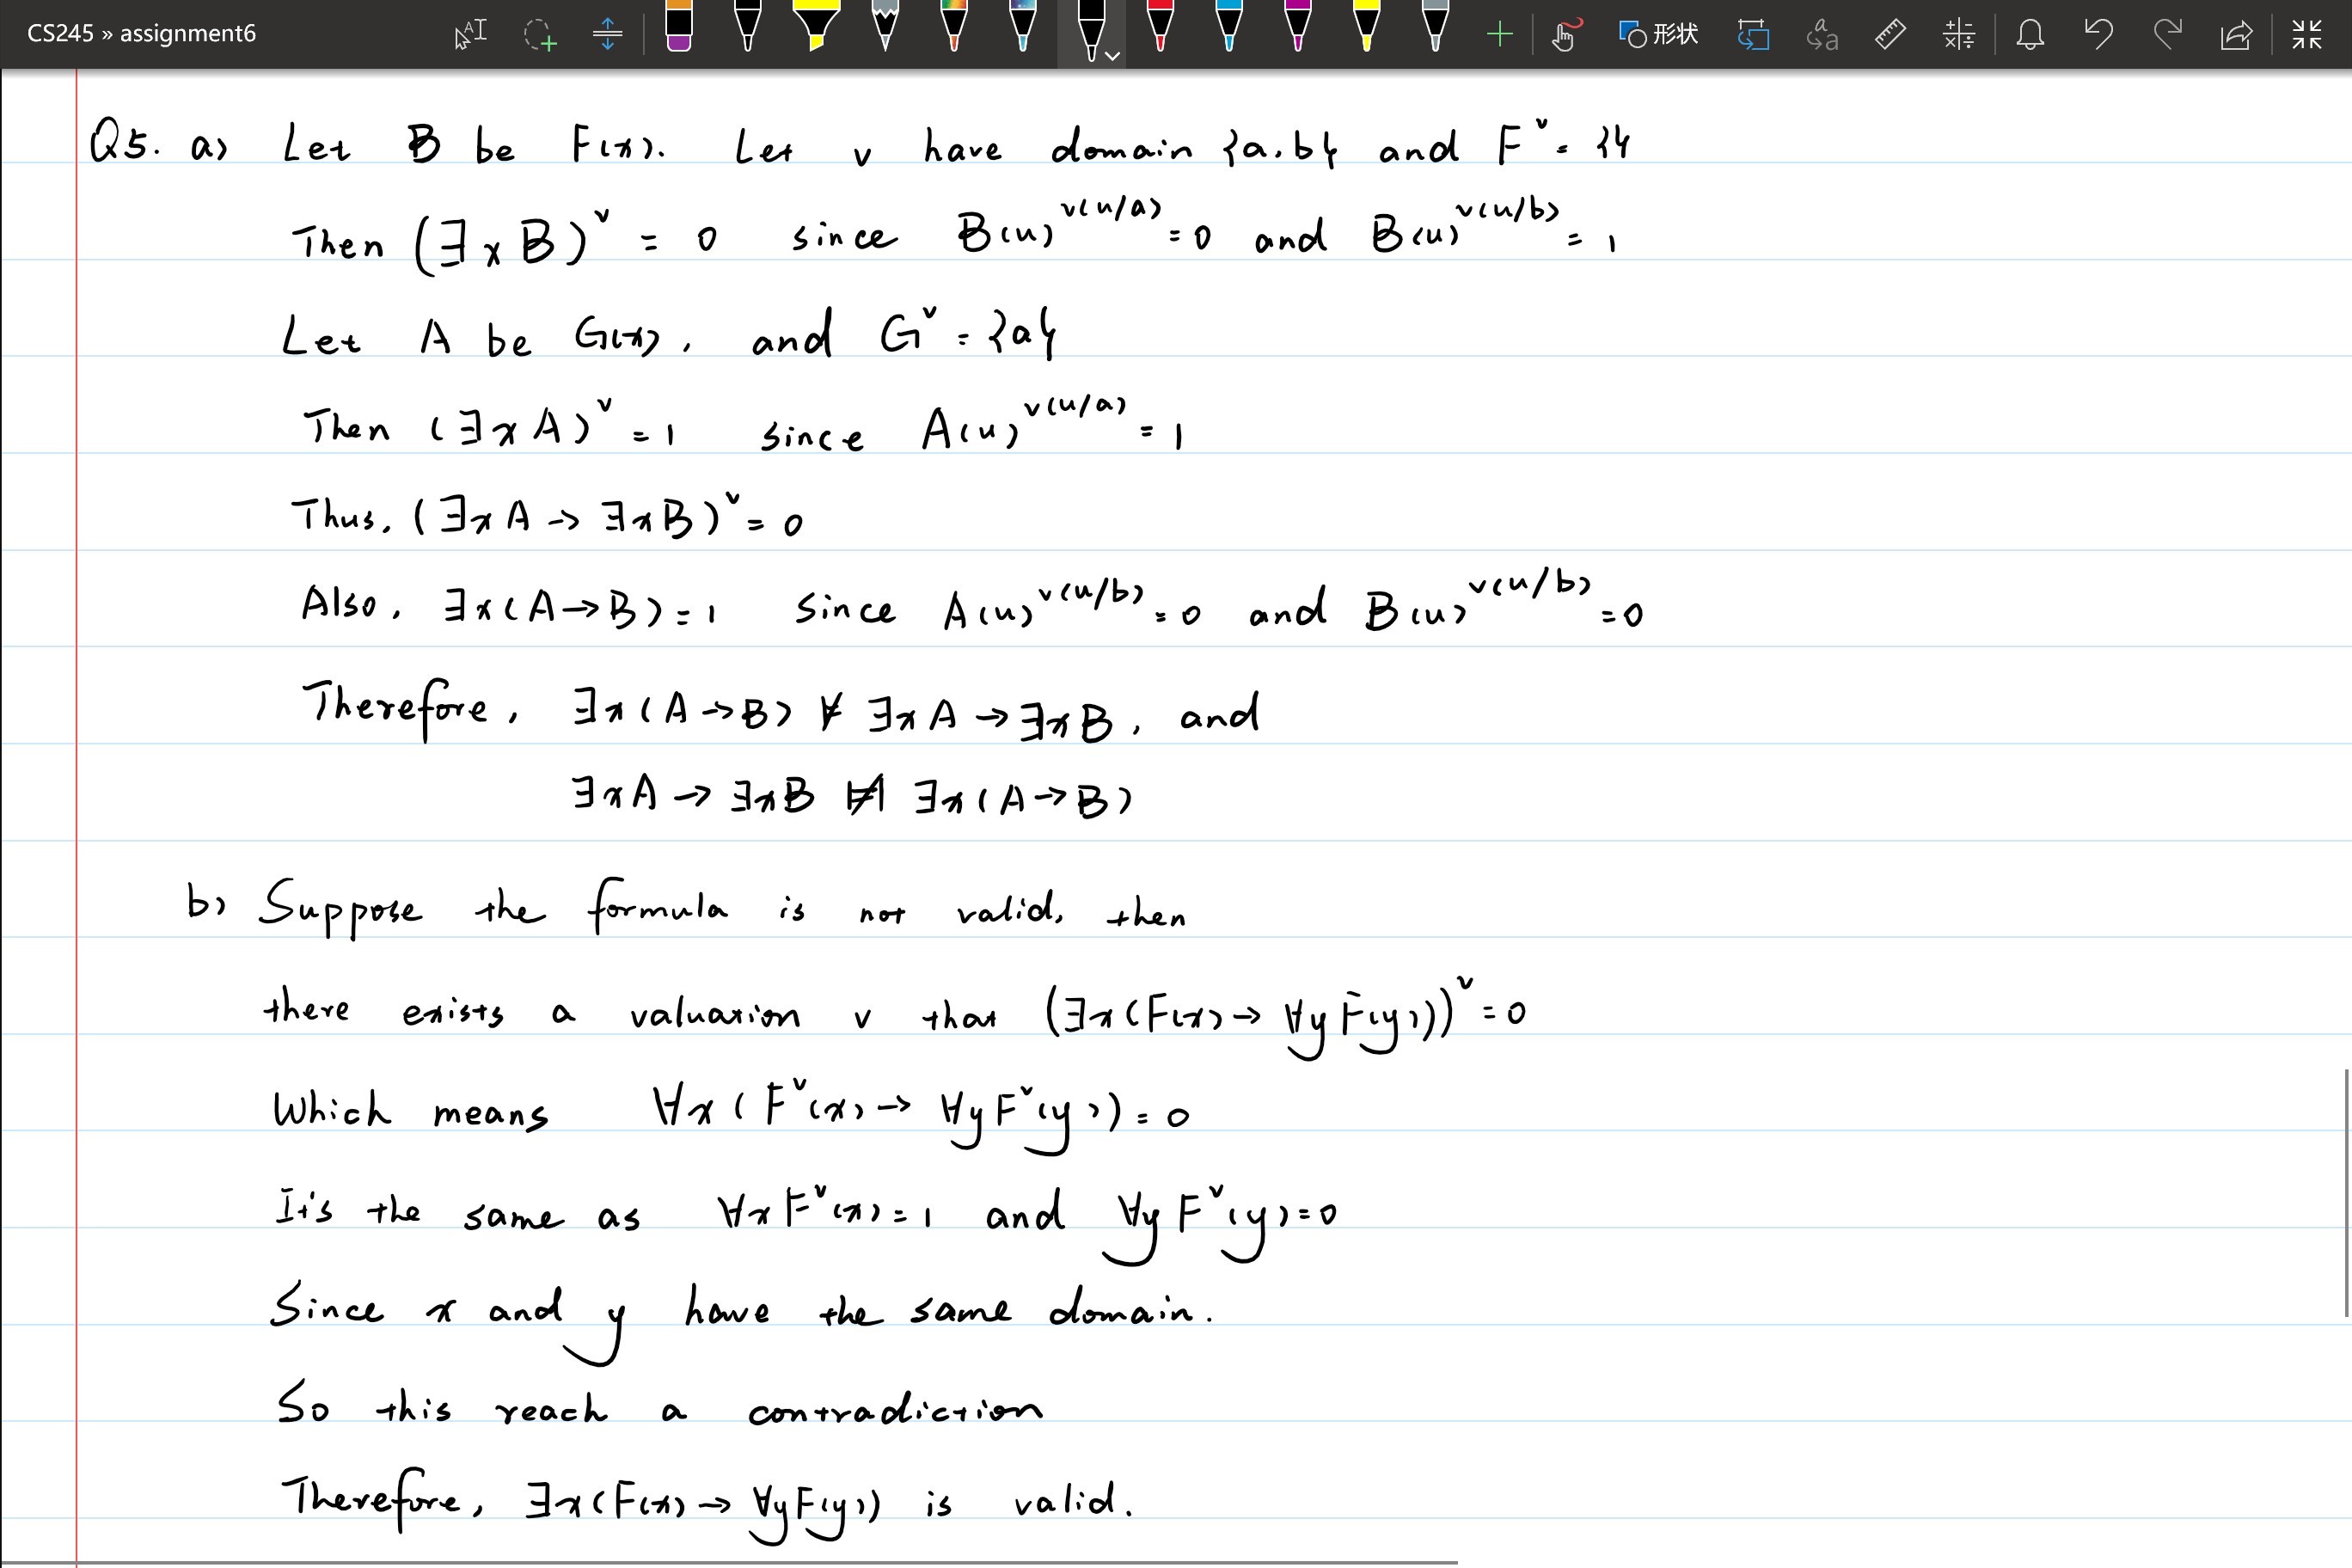 CS245 » assignment6
形状
Q5. a) Let B be F(x). Let v have domain {a, b} and Fᵛ = {}
Then (∃xB)ᵛ = 0 since B(u)ᵛ⁽ᵘ/ᵃ⁾ = 0 and B(u)ᵛ⁽ᵘ/ᵇ⁾ = 1
Let A be G(x), and Gᵛ = {a}
Then (∃xA)ᵛ = 1 since A(u)ᵛ⁽ᵘ/ᵃ⁾ = 1
Thus, (∃xA → ∃xB)ᵛ = 0
Also, ∃x(A→B) = 1 since A(u)ᵛ⁽ᵘ/ᵇ⁾ = 0 and B(u)ᵛ⁽ᵘ/ᵇ⁾ = 0
Therefore, ∃x(A→B) ⊭ ∃xA → ∃xB, and
∃xA → ∃xB ⊭⫤ ∃x(A→B)
b) Suppose the formula is not valid, then
there exists a valuation v that (∃x(F(x) → ∀yF(y)))ᵛ = 0
Which means ∀x(Fᵛ(x) → ∀yFᵛ(y)) = 0
It's the same as ∀xFᵛ(x) = 1 and ∀yFᵛ(y) = 0
Since x and y have the same domain.
So this reach a contradiction
Therefore, ∃x(F(x) → ∀yF(y)) is valid.